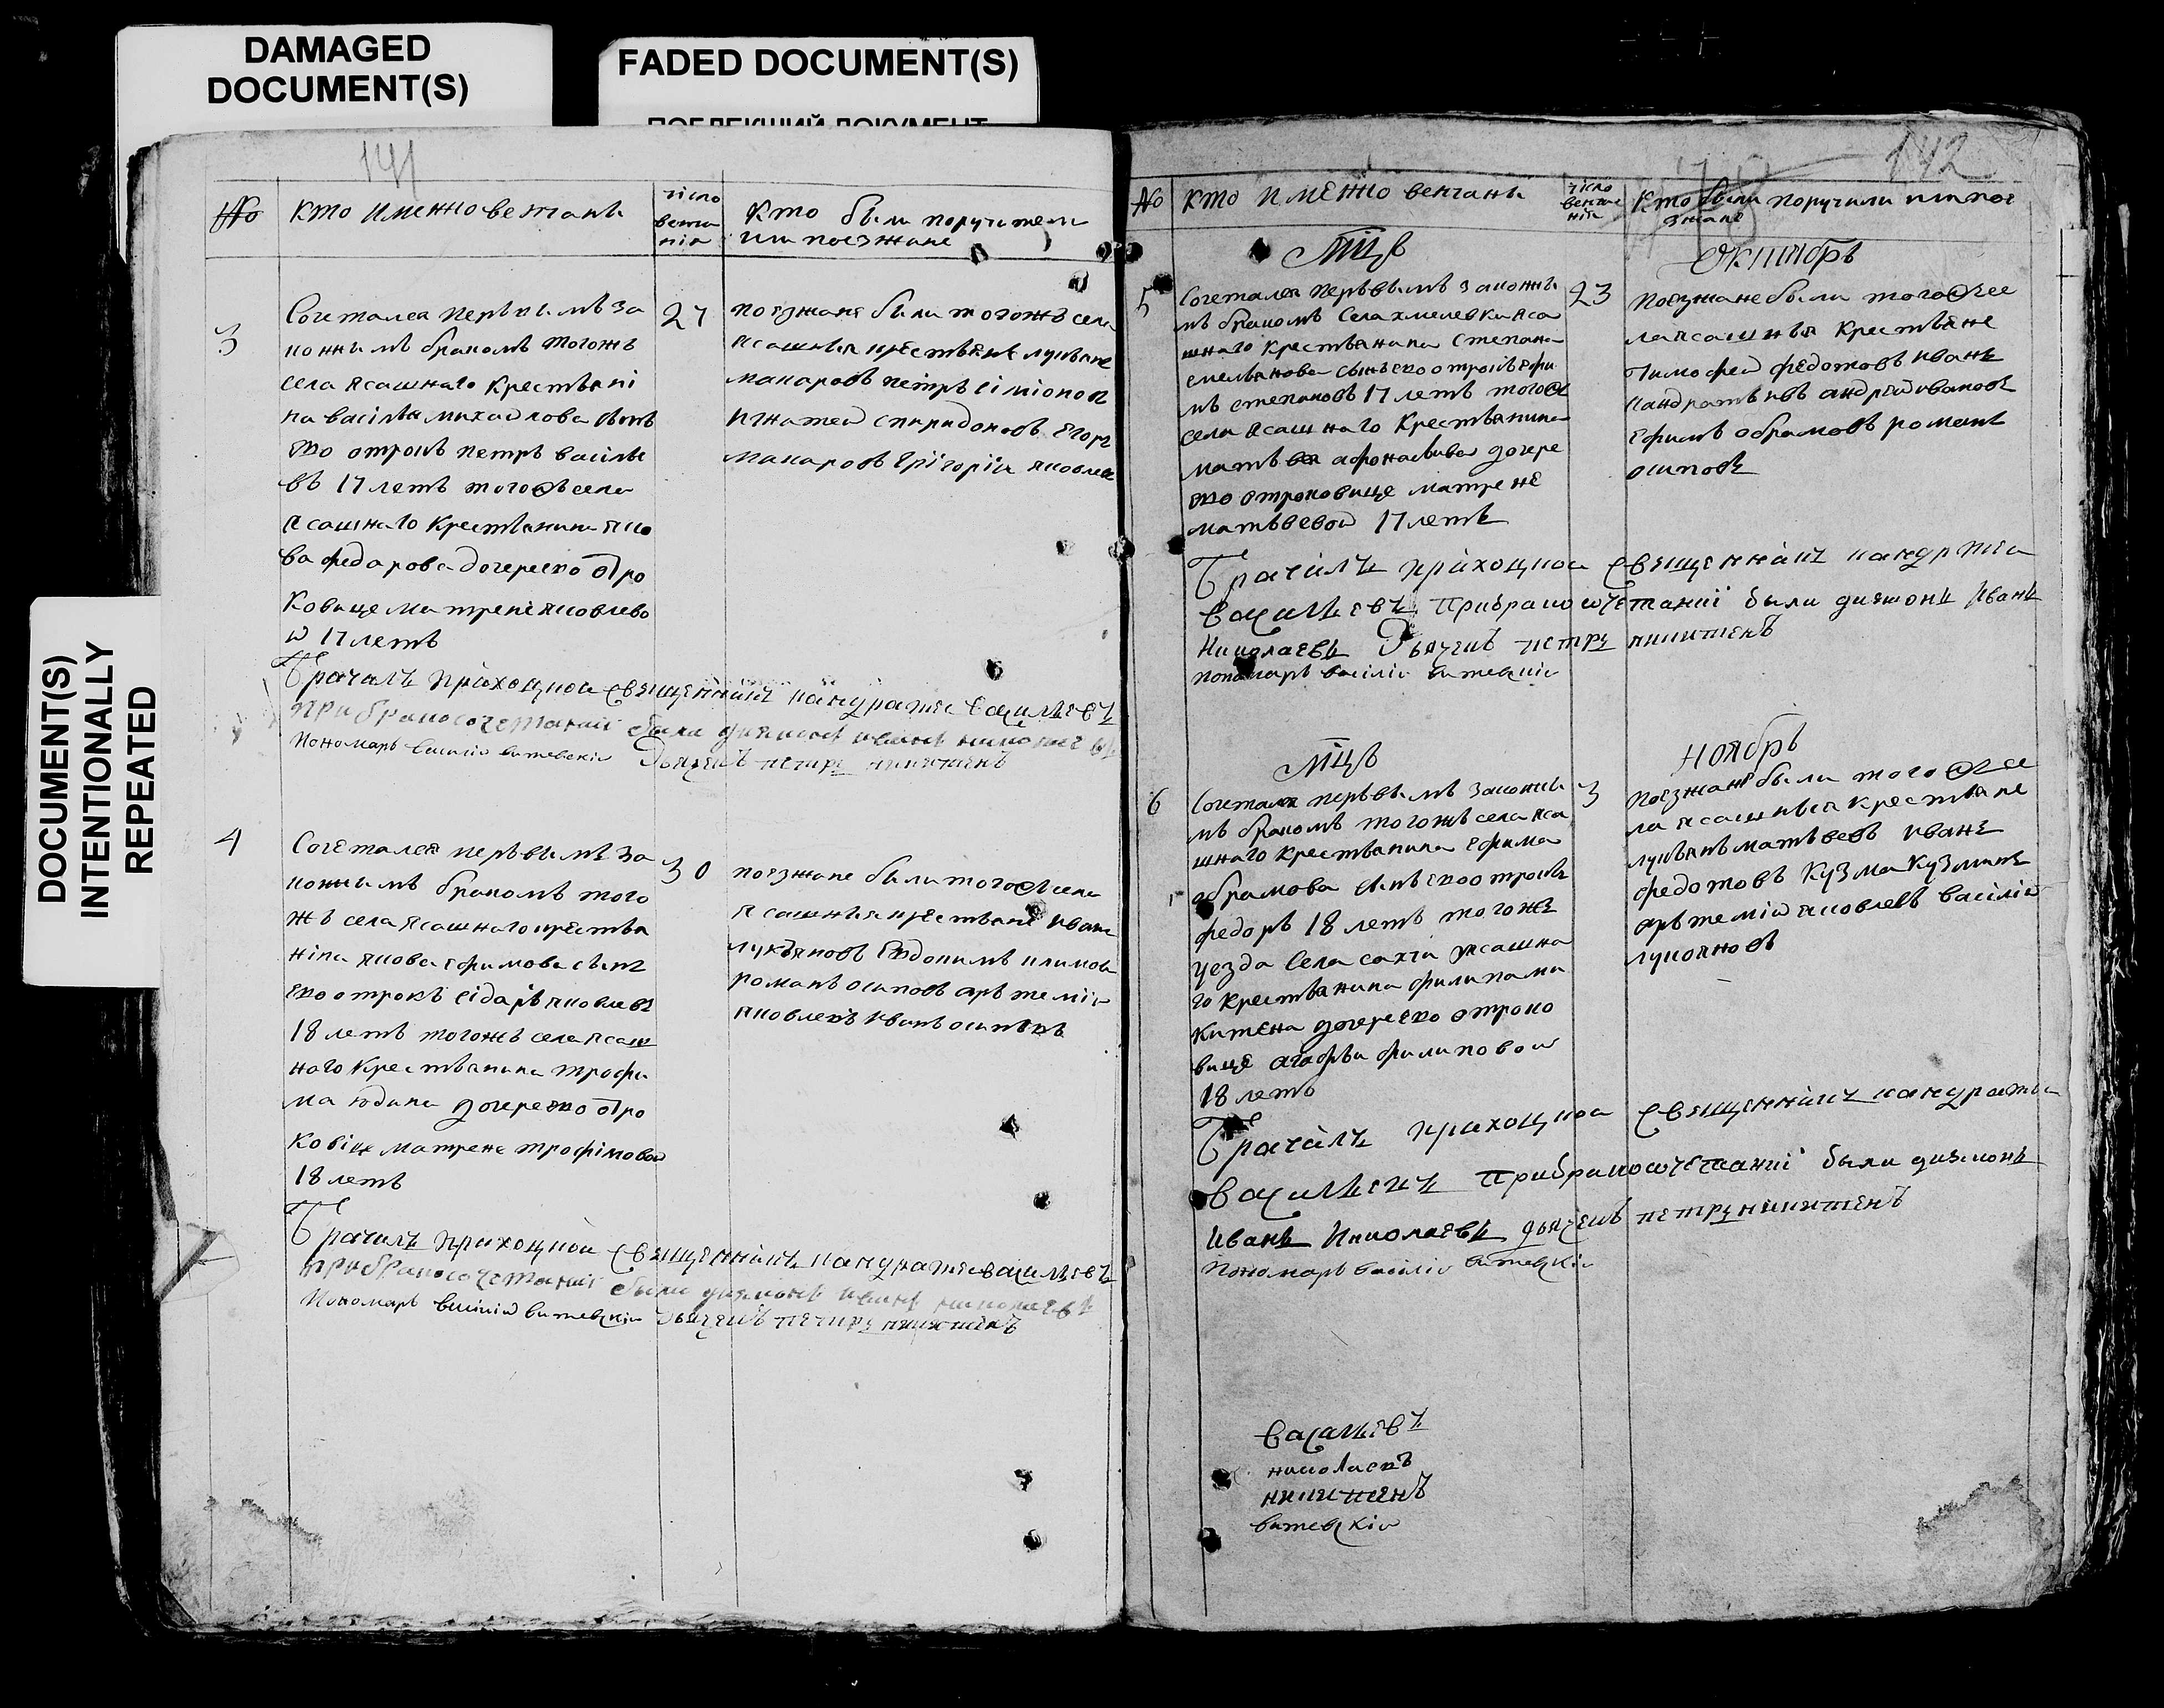 DAMAGED
DOCUMENT(S)
FADED DOCUMENT(S)
DOCUMENT(S)
INTENTIONALLY
REPEATED
141
№ кто именно венчанъ число венча нія кто были поручители
или поезжане
3
Сочетался первымъ за
коннымъ бракомъ тогожъ
села ясашнаго крестьяни
на василья михаилова сынъ
ево отрокъ петръ василье
въ 17 летъ тогожъ села
ясашнаго крестьянина яко
ва федарова дочерею отро
ковице матрене яковлево
й 17 летъ
27
поезжане были тогожъ села
ясашныя крестьяне лукьянъ
макаровъ петръ симіоновъ
игнатей спиридоновъ егоръ
макаровъ григорій яковлевъ
Брачилъ приходской священникъ кандратей васильевъ
при бракосочетаніи были диаконъ иванъ николаевъ
Пономарь василій витевскій Дьячекъ петръ никитенъ
4
Сочетался первымъ за
коннымъ бракомъ того
жъ села ясашнаго крестья
нина якова ефимова сынъ
ево отрокъ сідаръ яковлевъ
18 летъ тогожъ села ясаш
наго крестьянина трофи
ма юдина дочерею отро
ковице матрене трофімовой
18 летъ
30
поезжане были тогожъ села
ясашныя крестьяне иванъ
лукьяновъ евдокимъ климовъ
романъ осиповъ артемій
яковлевъ иванъ осиповъ
Брачилъ приходской священникъ кандратей васильевъ
при бракосочетаніи были диаконъ иванъ николаевъ
Пономарь василій витевскій Дьячекъ петръ никитенъ
142
№ кто именно венчанъ число венча нія кто были поручили или пое
зжане
Мцъ Октиябрь
5
Сочетался первымъ законны
мъ бракомъ села хмелевки яса
шнаго крестьянина степана
емельянова сынъ ево отрокъ ефи
мъ степановъ 17 летъ тогожъ
села ясашнаго крестьянина
матвея афонасьива дочере
ево отроковице матрене
матьвевой 17 летъ
23
поезжане были тогожъ се
ла ясашныя крестьяне
тимофей федотовъ иванъ
кандратьивъ андрей ивановъ
ефимъ абрамовъ романъ
осиповъ
Брачилъ приходской священникъ кандратей
васильевъ при бракосочетаніи были диаконъ иванъ
Николаевъ Дьячекъ петръ никитенъ
пономарь василій витевскій
Мцъ Ноябрь
6
Сочетался первымъ законны
мъ бракомъ тогожъ села яса
шнаго крестьянина ефима
абрамова сынъ ево отрокъ
федоръ 18 летъ тогожъ
уезда села сахчи ясашна
го крестьянина филипа ни
китена дочере ево отроко
вице агафьи филиповой
18 летъ
3
поезжане были тогожъ се
ла ясашныя крестьяне
лукьянъ матьвевъ иванъ
федотовъ кузма кузминъ
артемій яковлевъ василій
лукояновъ
Брачилъ приходской священникъ кандратей
васильевъ при бракосочетаніи были диаконъ
Иванъ Николаевъ дьячекъ петръ никитенъ
Пономарь василій витевскій
васильевъ
николаевъ
никитенъ
витевскій